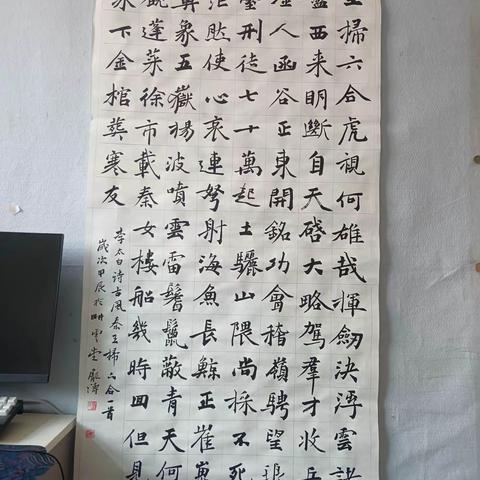 掃六合虎視何雄哉揮劍決浮雲諸
盡西來明斷自天啓大略駕羣才收兵
人函谷正東開銘功會稽嶺騁望琅
臺刑徒七十萬起土驪山隈尚採不死
然使心哀連弩射海魚長鯨正崔嵬
鼻象五嶽揚波噴雲雷鬐鬣蔽青天何
覩蓬萊徐市載秦女樓船幾時回但見
泉下金棺葬寒友
李太白詩古風秦王掃六合一首
歲次甲辰於雲堂